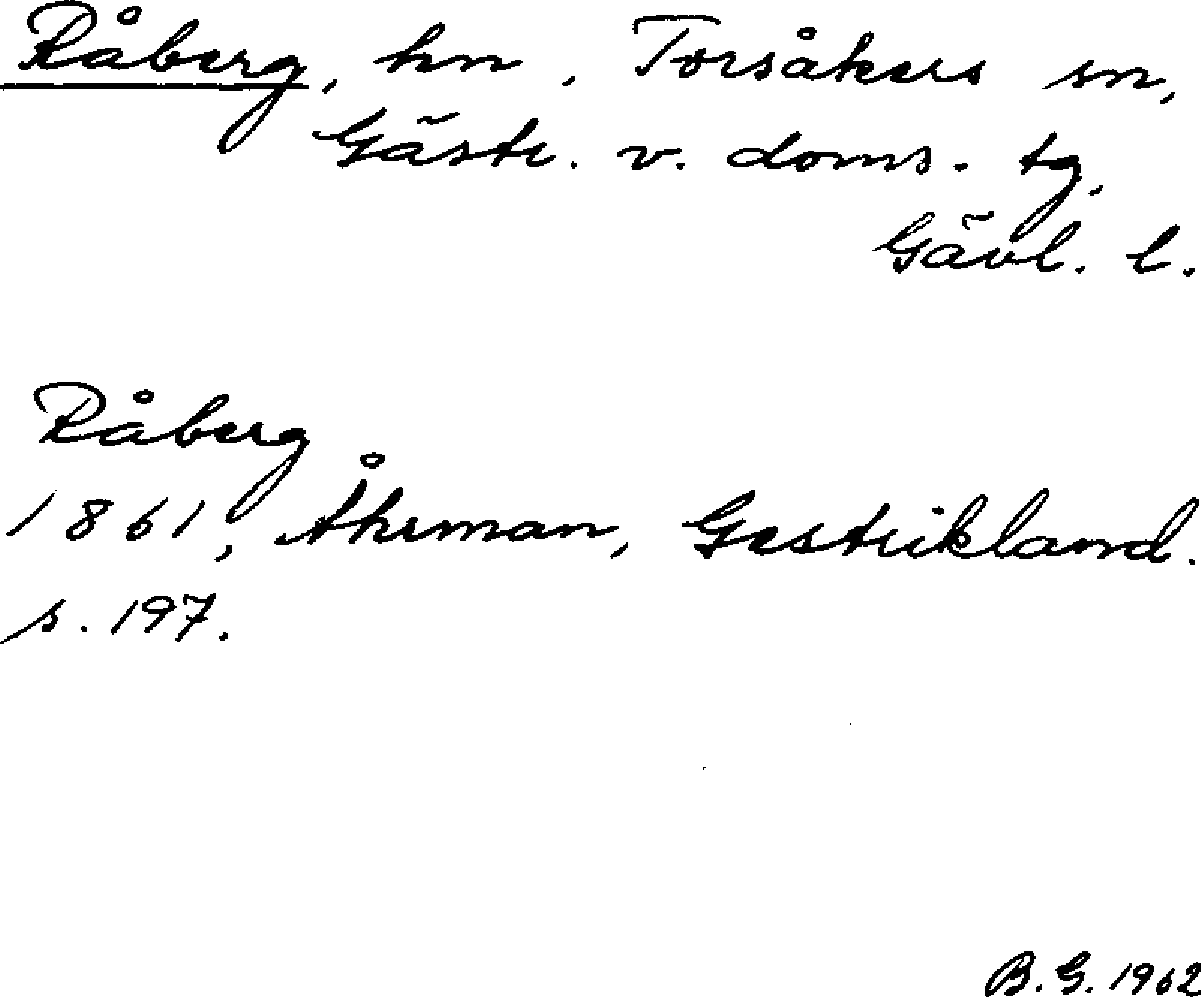 Råberg, hn, Torsåkers sn,
Gästr. v. doms. tg,
Gävl. l.
Råberg
1861, Åhrman, Gestrikland.
s. 197.
B. G. 1962